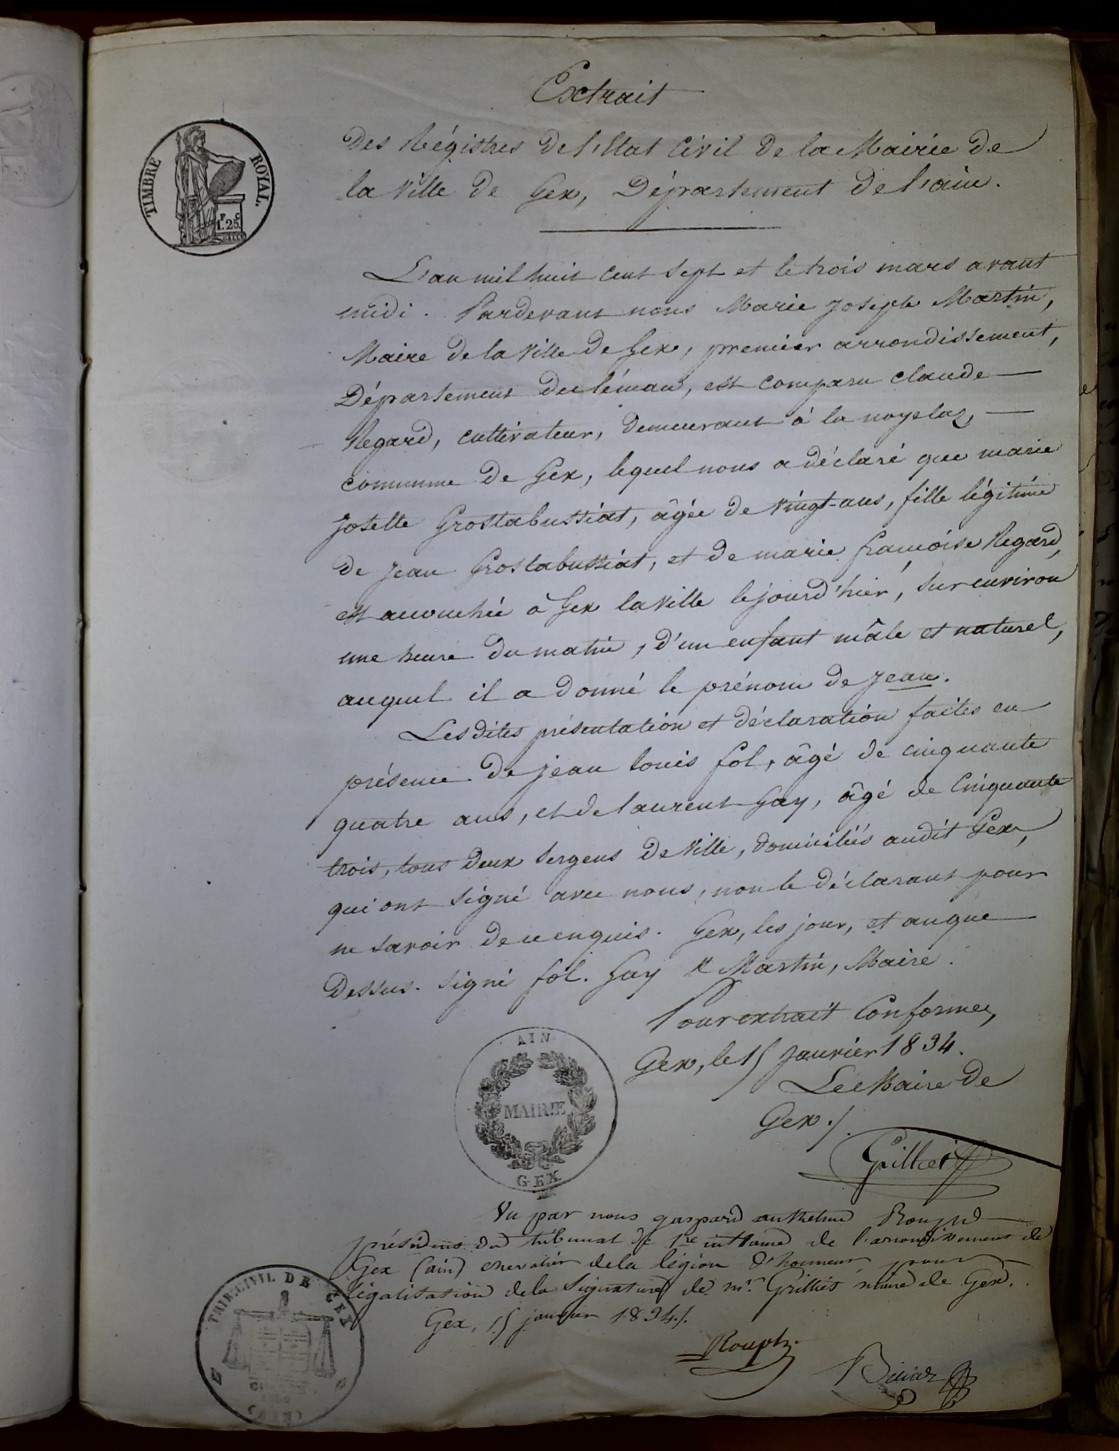 Extrait
Des Régistres de l'Etat Civil de la Mairie de
la Ville de Gex, Département de l'ain.
TIMBRE ROYAL.
1F. 25c
L'an mil huit cent sept et le trois mars avant
midi. Pardevant nous Marie Joseph Martin,
Maire de la Ville de Gex, premier arrondissement,
Département du léman, est comparu claude
Regard, cultivateur, demeurant à la noyelaz,
commune de Gex, lequel nous a déclaré que marie
Josette Grostabussiat, âgée de vingt-ans, fille légitime
de Jean Grostabussiat, et de marie françoise Regard,
est accouchée à Gex la Ville le jourd'hier, sur environ
une heure du matin, d'un enfant mâle et naturel,
auquel il a donné le prénom de Jean.
Les dites présentation et déclaration faites en
présence de jean Louis fol, âgé de cinquante
quatre ans, et de laurent Gay, âgé de Cinquante
trois, tous deux sergens de Ville, domiciliés audit Gex,
qui ont signé avec nous, non le déclarant pour
ne savoir de ce enquis. Gex, les jour, et an que
Dessus. signé fol. Gay & Martin, Maire.
Pour extrait Conforme,
Gex, le 15 Janvier 1834.
Le Maire de
Gex./.
AIN
MAIRIE
GEX
Vu par nous gaspard anthelme
président du tribunal de 1re instance de l'arrondissement de
Gex (ain) chevalier de la légion d'honneur pour
légalisation de la signature de mr. Grilliet maire de Gex.
Gex, 15 janvier 1834./.
TRIB. CIVIL DE GEX